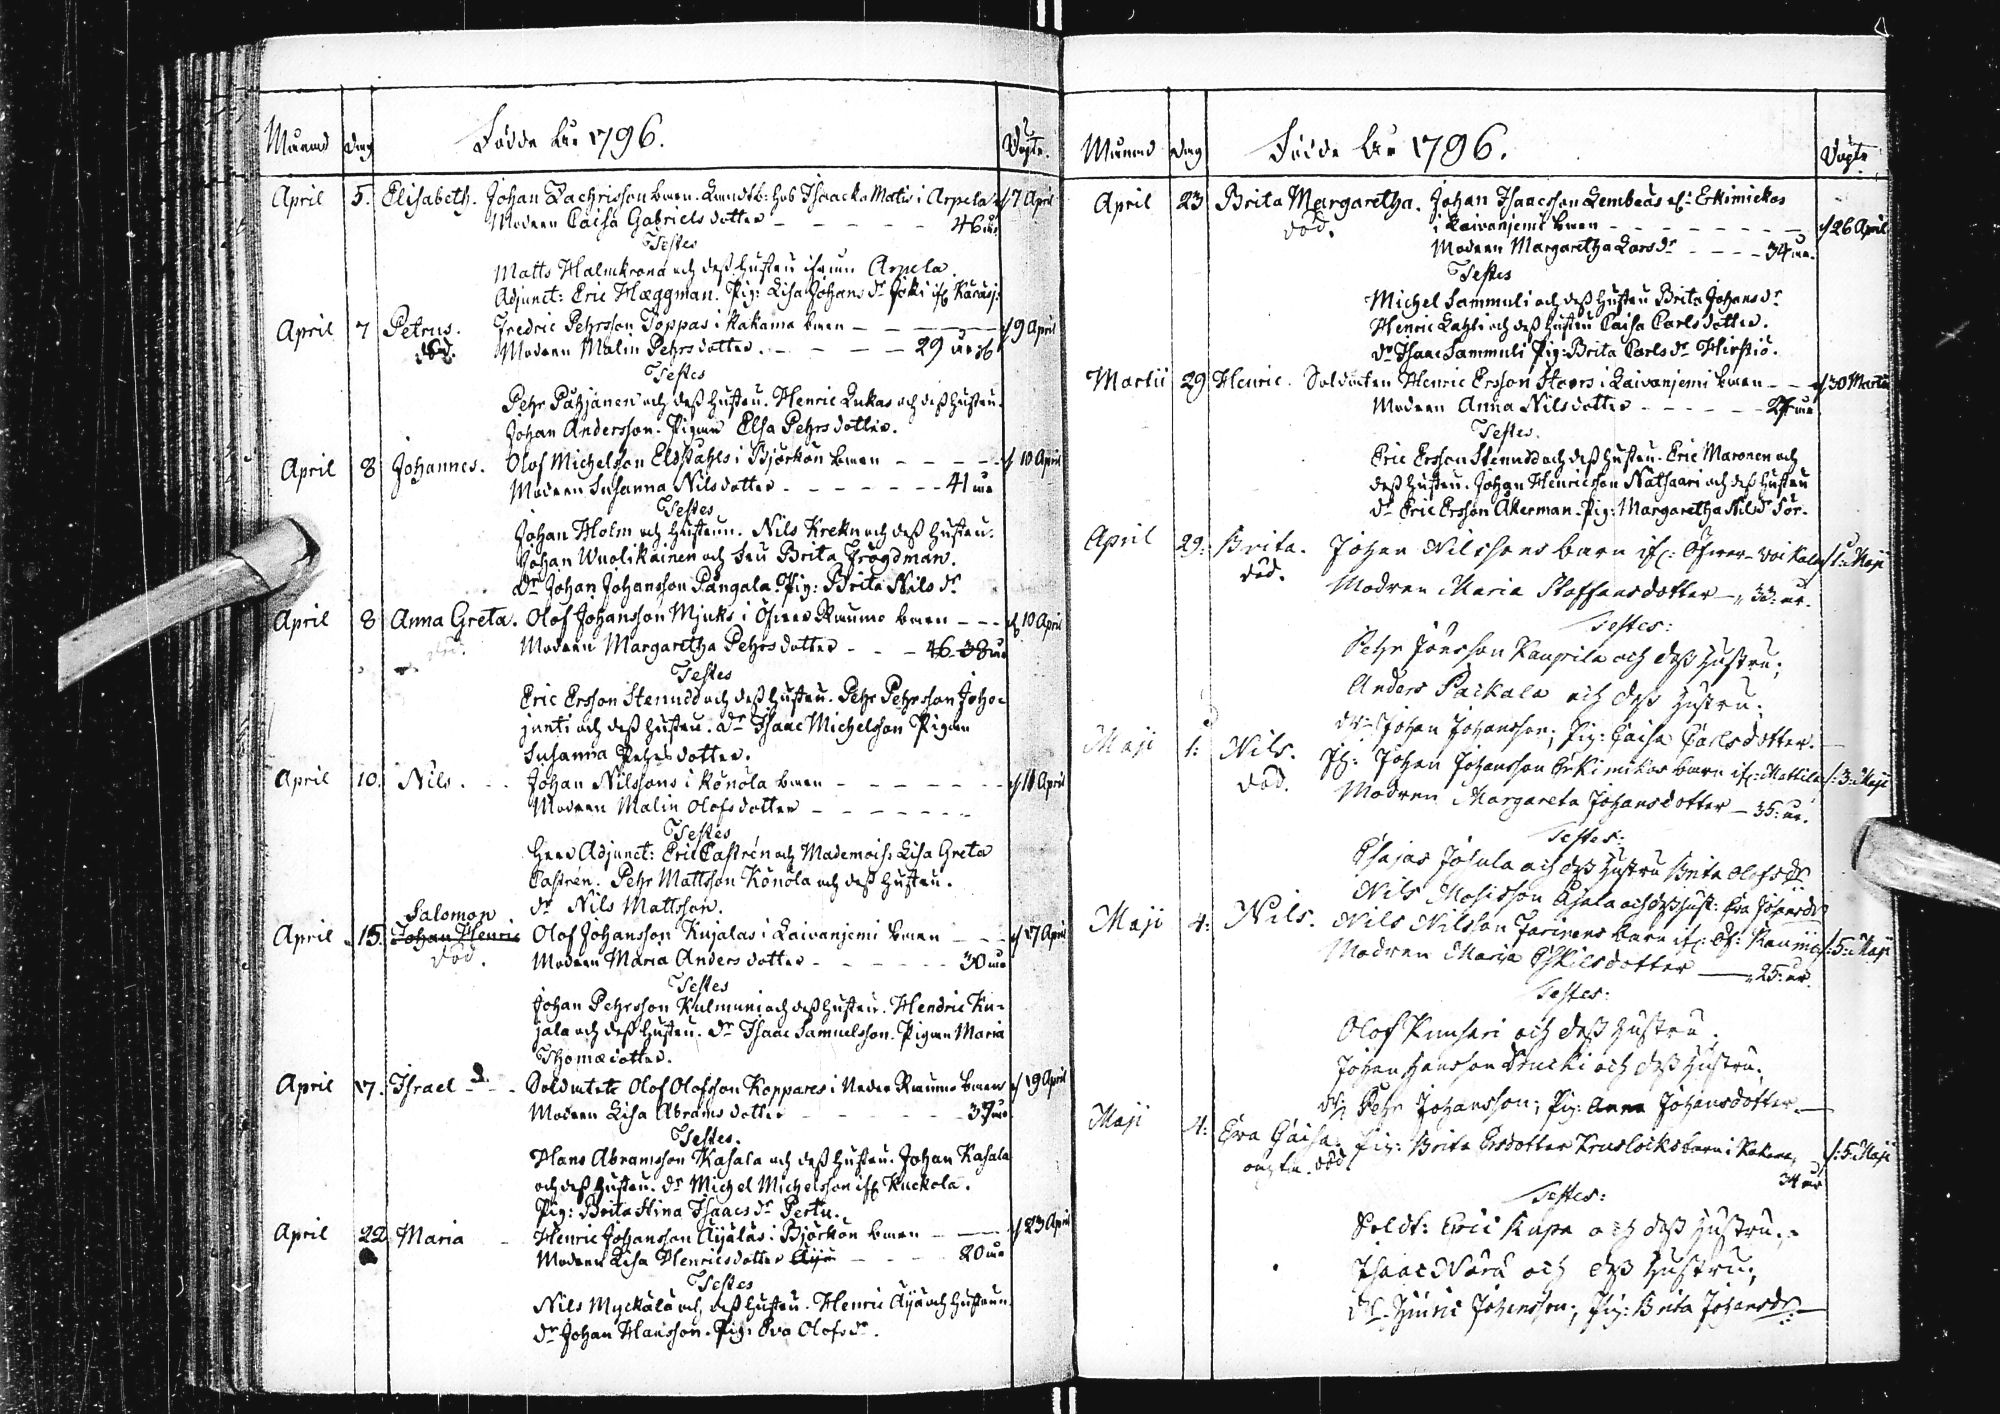 Månad Dag Födde År 1796. Döpte.
April 5. Elisabeth. Johan Zachrisson barn. Landtb: hos Isaacka Matis i Arpela 7 April
Modren Caisa Gabriels dotter 46 år
Testes
Matts Halmkrona och dess hustru ifrån Arpela.
Adjunct: Eric Hæggman. Pig: Lisa Johans dr Joki if
April 7 Petrus. Fredric Pehrsson Toppas i Kakama barn 9 April
död. Modren Malin Pehrsdotter. 29 år
Testes
Pehr Pähjänen och dess hustru. Henric Lukas och dess hustru.
Johan Andersson. Pigan Elsa Pehrsdotter.
April 8 Johannes. Olof Michelsson Eldståhls i Björkön barn 10 April
Modren Susanna Nilsdotter 41 år
Testes
Johan Holm och hustrun. Nils Krekn och dess hustru.
Johan Wuolikainen och Fru Brita Frögdman.
Dr Johan Johansson Pangala. Pig: Brita Nils dr
April 8 Anna Greta. Olof Johansson Mjuks i Öfver Raumo barn 10 April
död. Modren Margaretha Pehrsdotter 46 38 år
Testes
Eric Ersson Stenudd och dess hustru. Pehr Pehrsson Joho-
junti och dess hustru. Dr Isaac Michelsson Pigan
Susanna Pehrsdotter.
April 10. Nils. Johan Nilssons i Könölä barn 11 April
Modren Malin Olofsdotter
Testes
Herr Adjunct: Eric Castrén och Mademois: Lisa Greta
Castrén. Pehr Mattsson Könölä och dess hustru.
Dr Nils Mattsson.
Salomon
April 15. Johan Henric Olof Johansson Kujalas i Laivanjemi barn 17 April
död. Modren Maria Andersdotter 30 år
Testes
Johan Pehrsson Kulmuni och dess hustru. Hendric Ku-
jala och dess hustru. Dr Isaac Samuelsson. Pigan Maria
Thomædotter.
April 17. Israel d. Soldatete Olof Olofsson Koppares i Neder Raumo barn 19 April
Modren Lisa Abramsdotter 37 år
Testes.
Hans Abramsson Kasala och dess hustru. Johan Kasala
och dess hustru. Dr Michel Michelsson if Kuckola.
Pig: Brita Stina Isaacs dr Pertu.
April 22 Maria Henric Johansson Äijäläs i Björkön barn 23 April
Modren Lisa Henricsdotter Äijä 20 år
Testes
Nils Myckälä och dess hustru. Henric Äijä och hustrun.
Dr Johan Hansson. Pig: Eva Olofs dr.
Månad Dag Födde År 1796. Döpte
April 23 Brita Margaretha. Johan Isaacsson Lembeas ell: Erkimickas
död. i Laivanjemi barn 26 April
Modren Margaretha Lars dr 34 år.
Testes
Michel Sammuli och dess hustru Brita Johans dr
Henric Lahti och dess hustru Caisa Carlsdotter.
Dr Isaac Sammuli Pig: Brita Carls dr Hirstiö.
Martii 29 Henric. Soldaten Henric Ersson Stoors i Laivanjemi barn 30 Martii
Modren Anna Nilsdotter 27 år
Testes.
Eric Ersson Stenudd och dess hustru. Eric Maronen och
dess hustru. Johan Henricsson Natsaari och dess hustru
Dr Eric Ersson Åkerman. Pig: Margaretha Nils dr
April 29: Brita. Johan Nilssons barn if: Öfver-Voikala 1: Maji
död. Modren Maria Staffansdotter 33: år.
Testes:
Pehr Jönsson Kauprila och dess hustru;
Anders Paikala och dess hustru;
Dr: Johan Johansson; Pig: Caisa Carlsdotter.
Maji 1: Nils. Johan Johansson Erkimikas barn if: Mattila 3: Maji
död. Modren Margareta Johansdotter 35: år.
Testes:
Esajas Josula och dess hustru Brita Olofs dr
Nils Mosisson Esala och dess hust: Eva Johans dr
Maji 4: Nils. Nils Nilsson barn if: Öf: Raumo 5: Maji
Modren Maria Eskilsdotter 25: år.
Testes:
Olof Kunsari och dess hustru.
Johan Hansson Prucki och dess hustru;
Dr: Pehr Johansson; Pig: Anna Johansdotter.
Maji 4: Eva Caisa. Pig: Brita Ersdotter Kruslocks barn i 5: Maji
oägta. död 34 år
Testes:
Sold: Eric Kupa och dess hustru;
Isaac Nära och dess hustru;
Dr. Hinric Johansson; Pig: Brita Johans dr